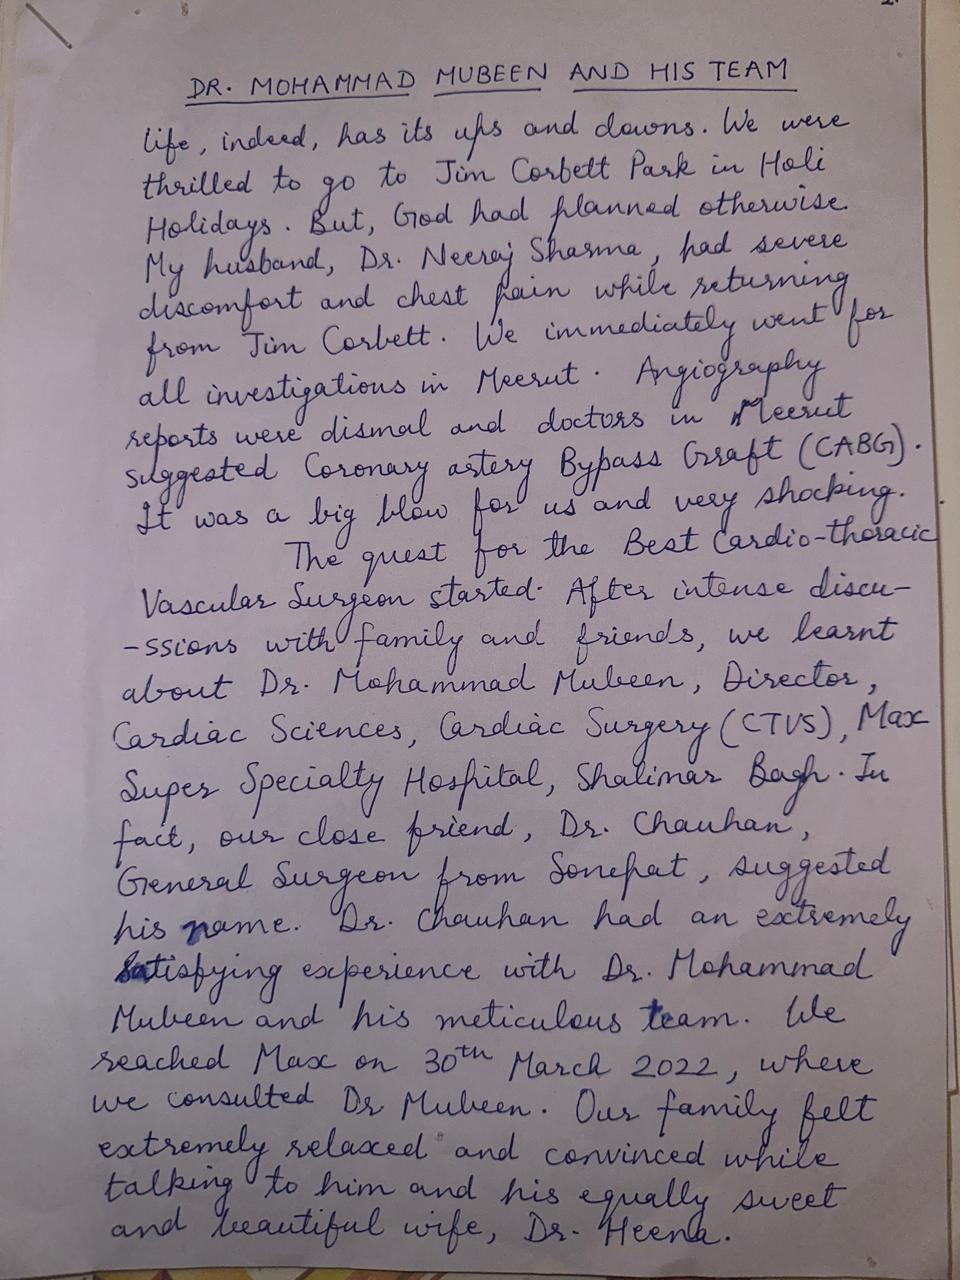 DR. MOHAMMAD MUBEEN AND HIS TEAM
life, indeed, has its ups and downs. We were
thrilled to go to Jim Corbett Park in Holi
Holidays. But, God had planned otherwise.
My husband, Dr. Neeraj Sharma, had severe
discomfort and chest pain while returning
from Jim Corbett. We immediately went for
all investigations in Meerut. Angiography
reports were dismal and doctors in Meerut
suggested Coronary artery Bypass Graft (CABG).
It was a big blow for us and very shocking.
The quest for the Best Cardio-thoracic
Vascular Surgeon started. After intense discu-
-ssions with family and friends, we learnt
about Dr. Mohammad Mubeen, Director,
Cardiac Sciences, Cardiac Surgery (CTVS), Max
Super Specialty Hospital, Shalimar Bagh. In
fact, our close friend, Dr. Chauhan,
General Surgeon from Sonepat, suggested
his name. Dr. Chauhan had an extremely
satisfying experience with Dr. Mohammad
Mubeen and his meticulous team. We
reached Max on 30th March 2022, where
we consulted Dr Mubeen. Our family felt
extremely relaxed and convinced while
talking to him and his equally sweet
and beautiful wife, Dr. Heena.